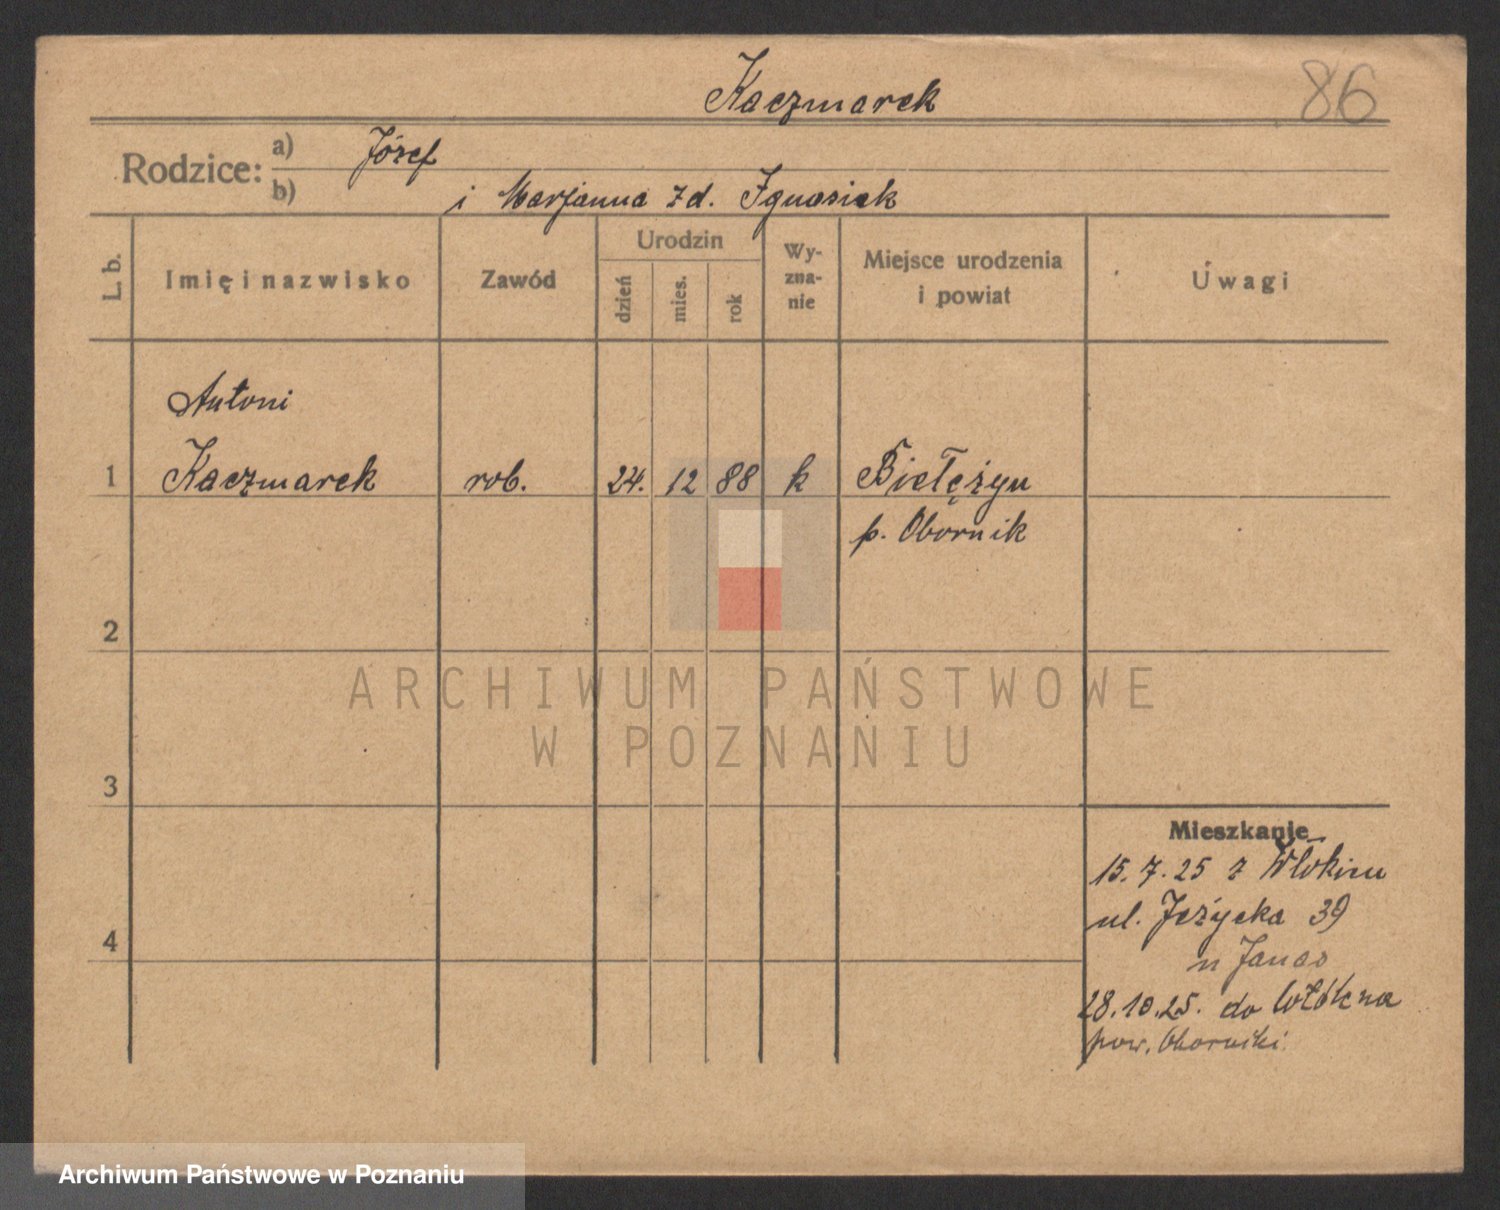 Kaczmarek
86
Rodzice: a) Józef
b) i Marjanna zd. Ignasiak
L. b.
Imię i nazwisko
Zawód
Urodzin
dzień
mies.
rok
Wy-
zna-
nie
Miejsce urodzenia
i powiat
Uwagi
Antoni
1 Kaczmarek rob. 24. 12 88 k Biełężyn
p. Obornik
2
3
4
Mieszkanie
15.7.25 z Włókien
ul. Jeżycka 39
u Janas
28.10.25. do Włókna
pow. Oborniki
ARCHIWUM PAŃSTWOWE
W POZNANIU
Archiwum Państwowe w Poznaniu